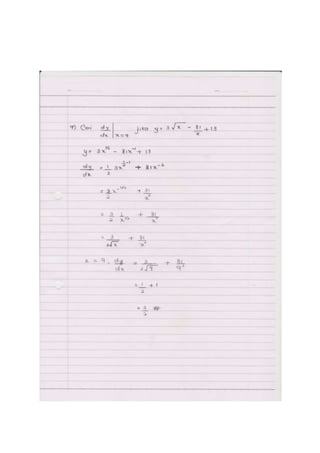 9) Cari dy/dx | x=9 jika y = 3√x - 81/x + 13
y = 3x^½ - 81x⁻¹ + 13
dy/dx = 1/2 · 3x^(½-1) + 81x⁻²
= 3/2 x^(-1/2) + 81/x²
= 3/2 · 1/x^½ + 81/x²
= 3/(2√x) + 81/x²
x = 9 · dy/dx = 3/(2√9) + 81/9²
= 1/2 + 1
= 3/2